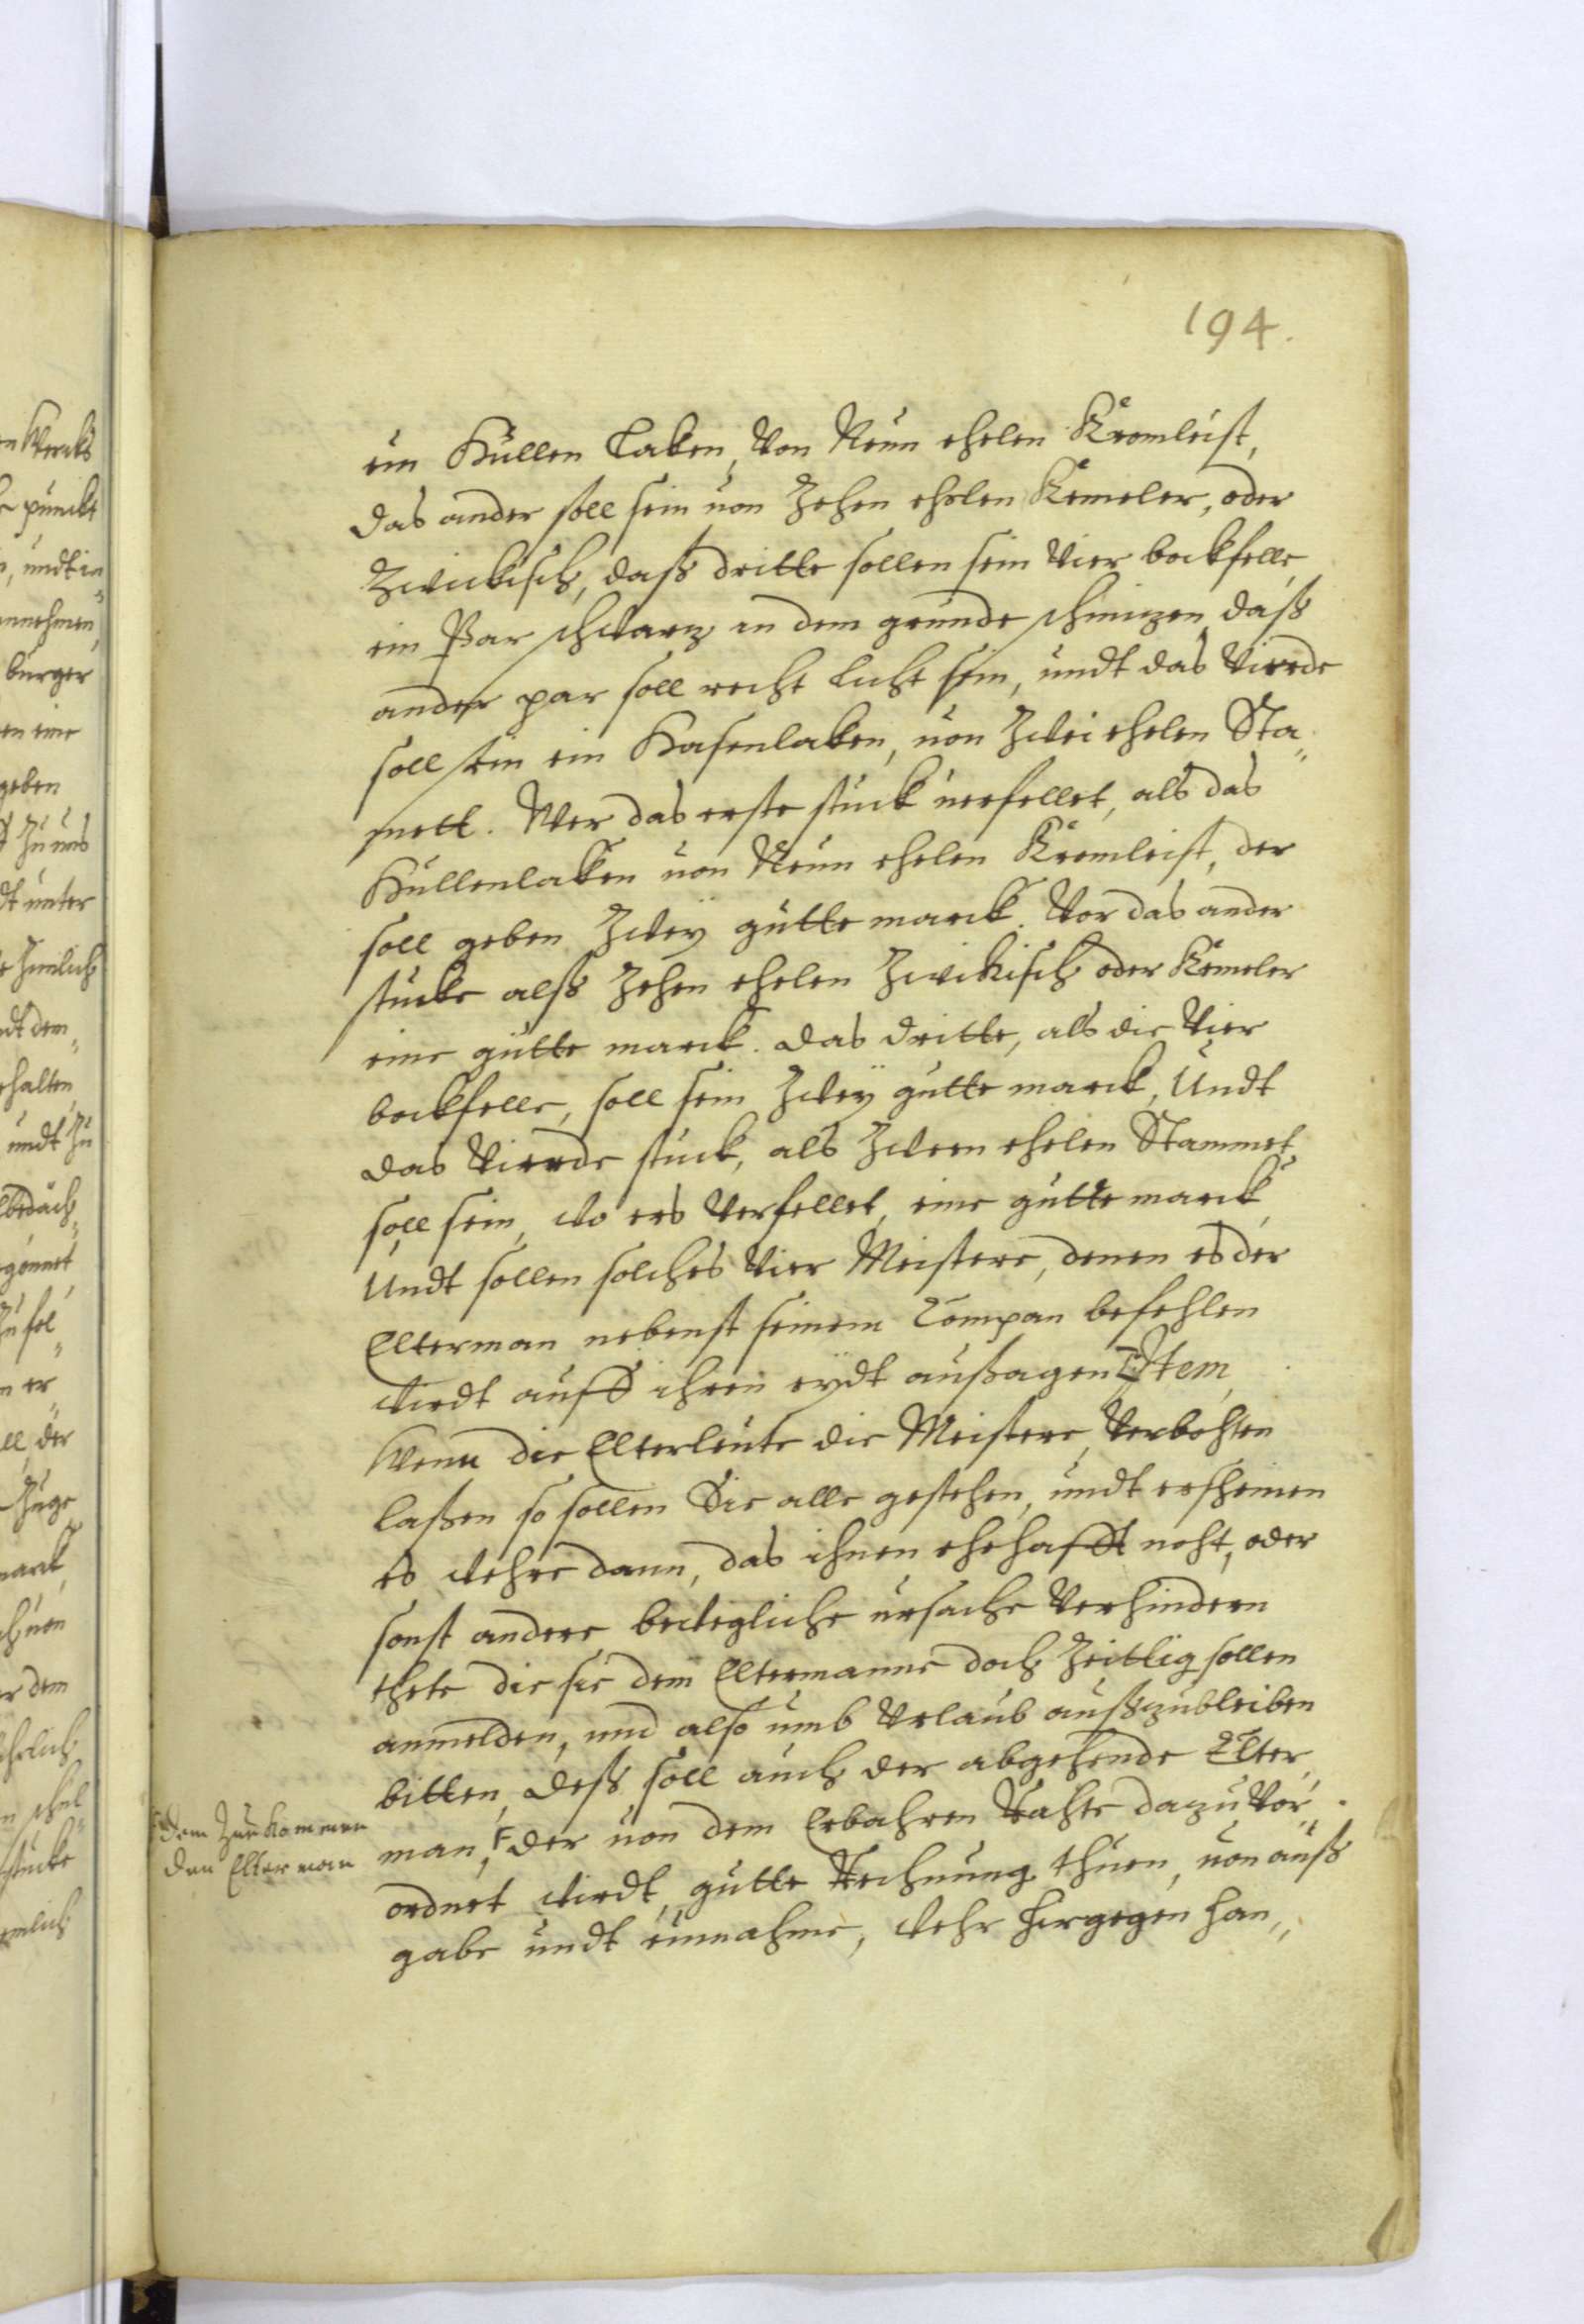 194.
ein Hüllen Laken, Von Neun ehelen Kromleist,
das ander soll sein von Zehen ehelen Kemeler, oder
Zwickisch, daß dritte sollen sein Vier bockfelle
ein Par schwarz in dem grunde schmizen daß
ander par soll recht licht sein, undt das Vierde
soll sein ein Hasenlaken, von Zwei ehelen Sta„
mett. Wer das erste stuck verfellet, als das
Hüllenlaken von Neun ehelen Kromleist, der
soll geben Zweÿ gutte marck. Vor das ander
stucke alß Zehen ehelen Zwikisch oder Kemeler
eine gutte marck. das dritte, als die Vier
bockfelle, soll sein Zweÿ gutte marck, Undt
das Vierde stuck, als Zween ehelen Stammet,
soll sein, wo ers Verfellet, eine gutte marck,
Undt sollen solches Vier Meistere, denen es der
Elterman nebenst seinem Compan befehlen
wirdt auff ihren eydt außagen Item,
Wenn die Elterleute die Meistere Verbohten
laßen so sollen Sie alle gestehen, undt erscheinen
es wehre dann, das ihnen ehehafft noht, oder
sonst andere bewegliche ursache Verhindern
thete die sie dem Eltermanne doch Zeitlig sollen
anmelden, und also umb Vrlaub außzubleiben
bitten, deß soll auch der abgehende Elter„
man, F der von dem Erbahren Rahte dazu Vor„
ordnet wirdt, gutte Rechnung thuen, von auß
gabe undt einnahme, wehr hirgegen han„
F dem Zuekommen
den Elterman